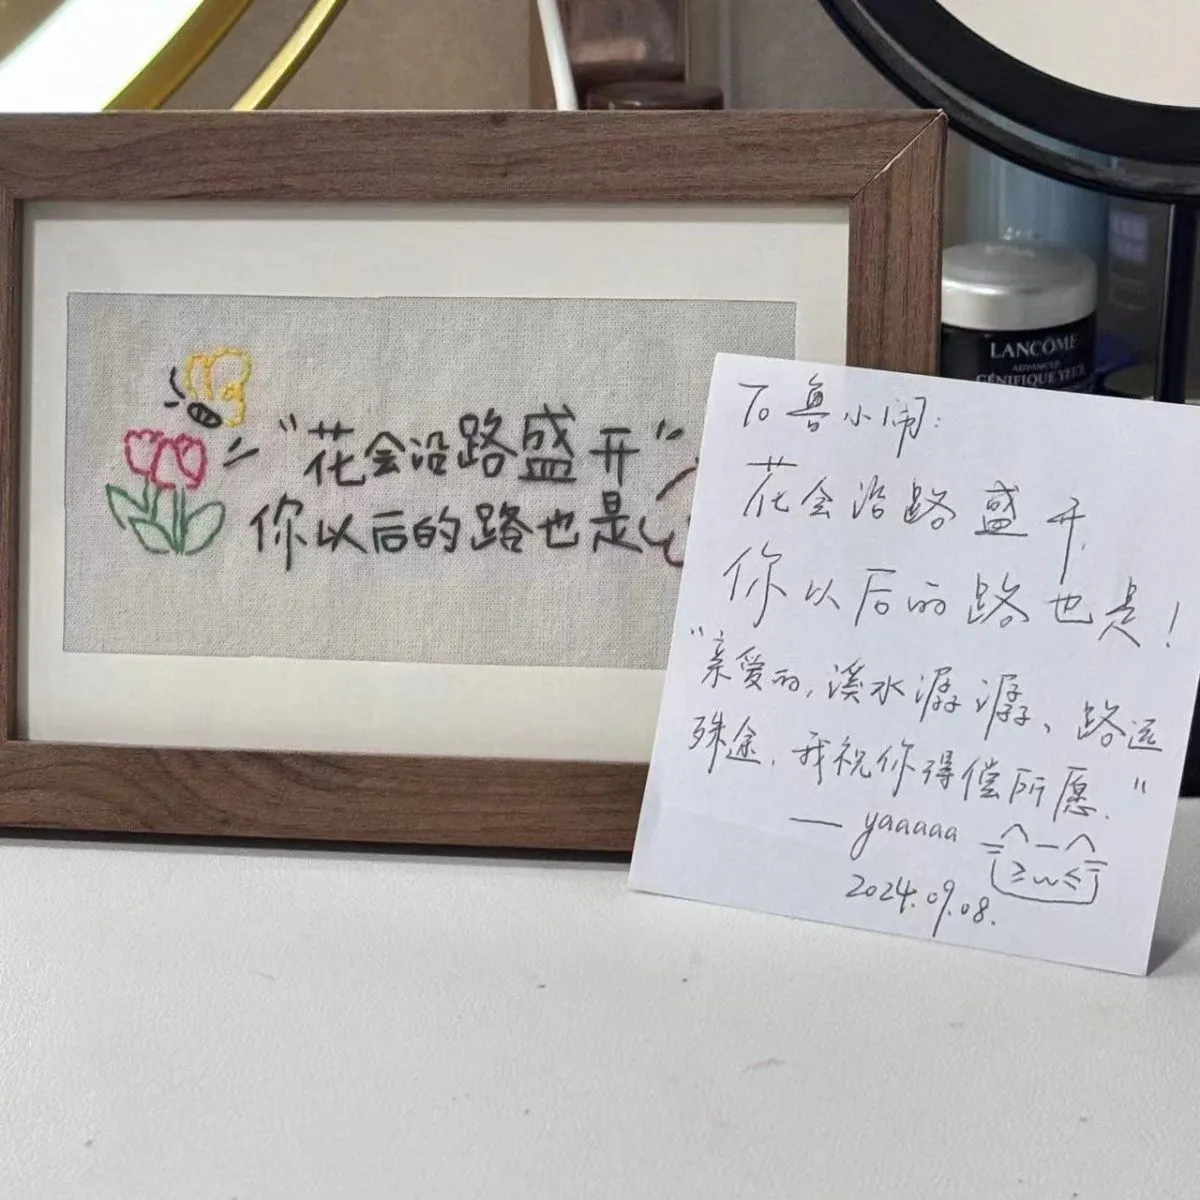 “花会沿路盛开”
你以后的路也是
LANCÔME
ADVANCED
GÉNIFIQUE YEUX
To 鲁小闹:
花会沿路盛开,
你以后的路也是!
“亲爱的,溪水潺潺、路远
殊途,我祝你得偿所愿.”
— yaaaaa
2024.09.08.